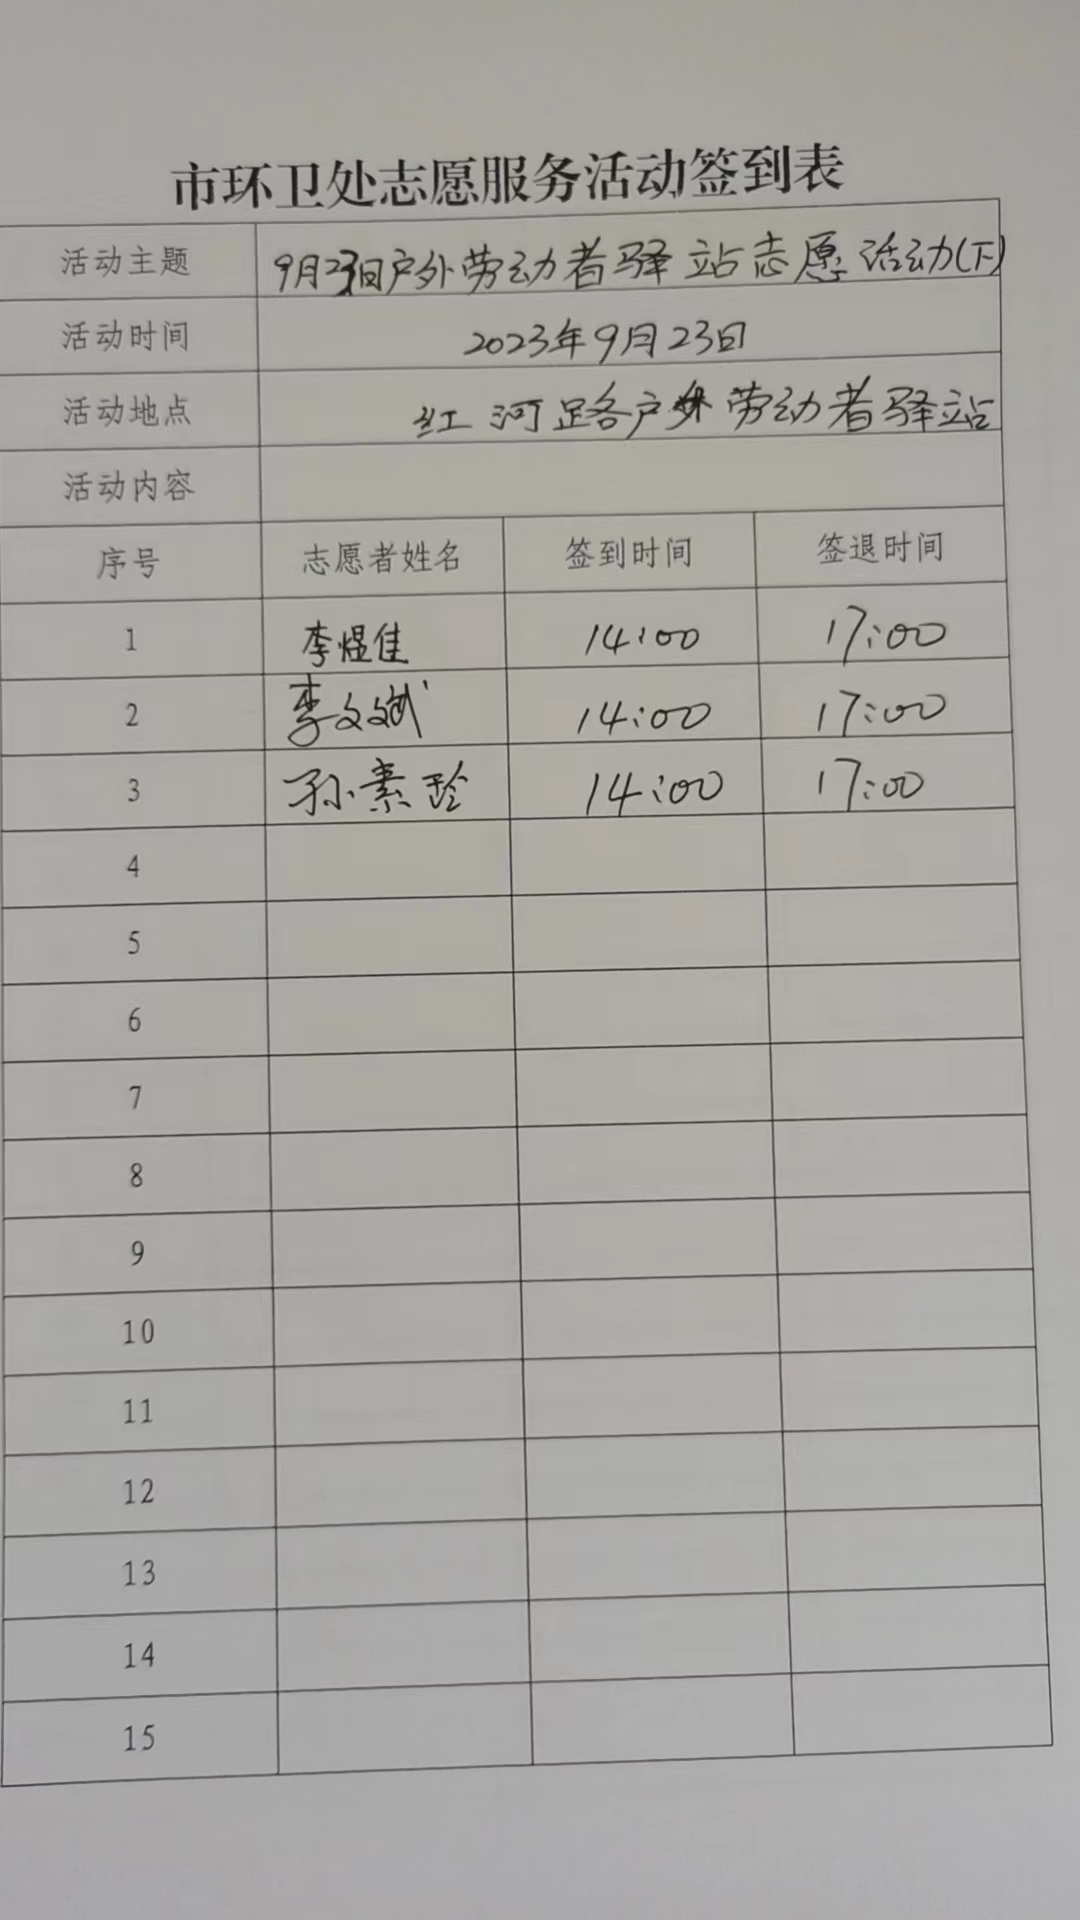 市环卫处志愿服务活动签到表
活动主题 9月23日户外劳动者驿站志愿活动(下)
活动时间 2023年9月23日
活动地点 红河路户外劳动者驿站
活动内容
序号 志愿者姓名 签到时间 签退时间
1 李煜佳 14:00 17:00
2 李文斌 14:00 17:00
3 孙素玲 14:00 17:00
4
5
6
7
8
9
10
11
12
13
14
15